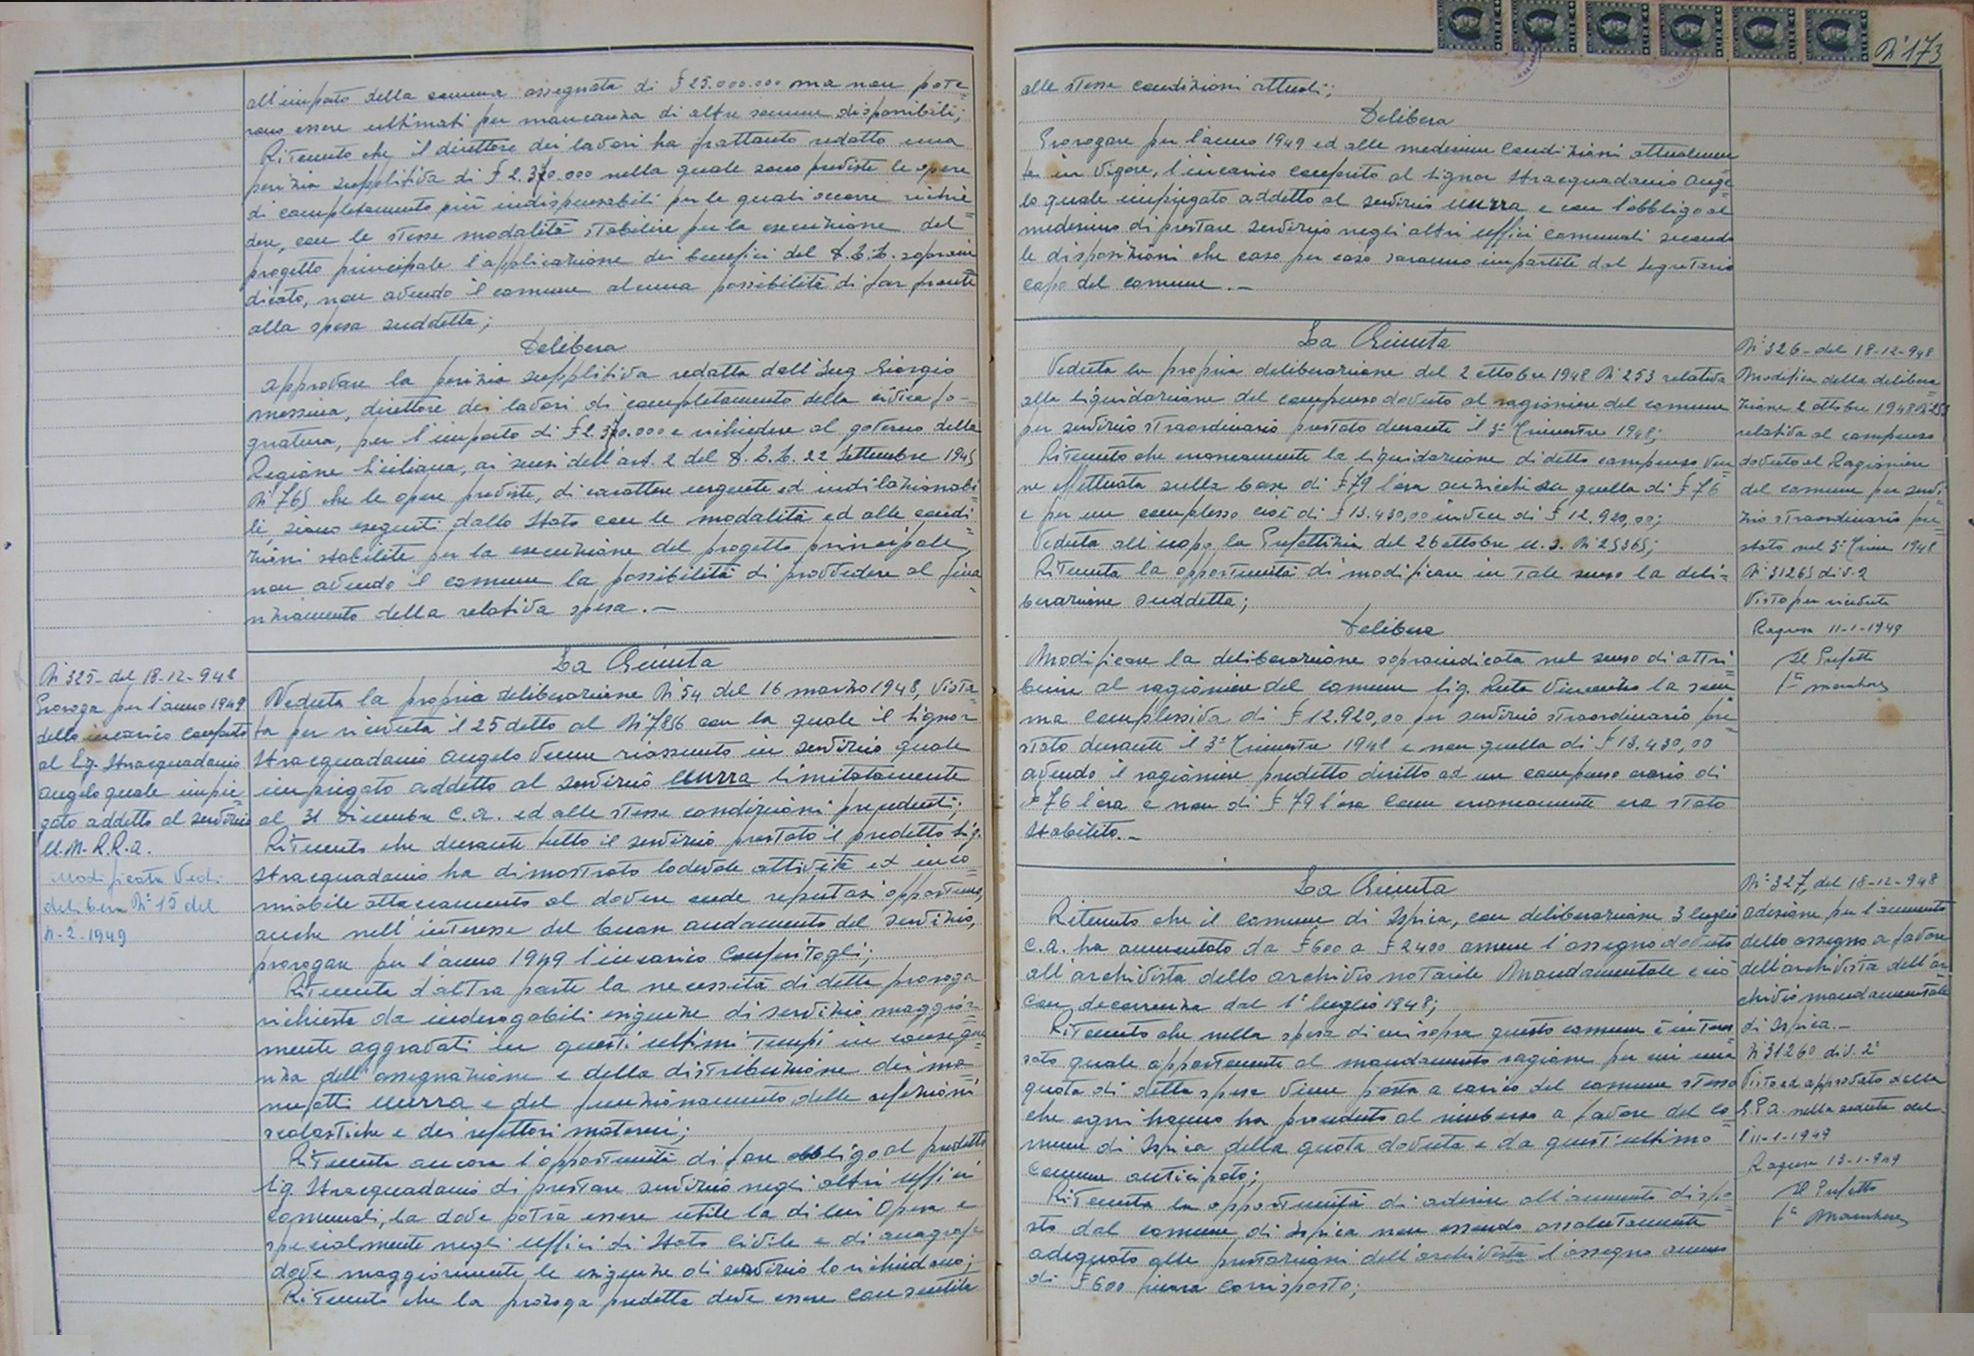 all'importo della somma assegnata di £ 25.000.000 ma non pote=
rono essere ultimati per mancanza di altre somme disponibili;
Ritenuto che il direttore dei lavori ha frattanto redatto una
perizia suppletiva di £ 2.370.000 nella quale sono previste le opere
di completamento più indispensabili per le quali occorre richie=
dere, con le stesse modalità stabilite per la esecuzione del
progetto principale l'applicazione dei benefici del D.L.L. soprain
dicato, non avendo il comune alcuna possibilità di far fronte
alla spesa suddetta;
Delibera
Approvare la perizia suppletiva redatta dall'Ing Giorgio
Messina, direttore dei lavori di completamento della civica fo-
gnatura, per l'importo di £ 2.370.000 e richiedere al governo della
Regione Siciliana, ai sensi dell'art. 2 del D.L.L. 22 Settembre 1945
N° 765 che le opere previste, di carattere urgente ed indilazionabi=
li, siano eseguiti dallo Stato con le modalità ed alle condi=
zioni stabilite per la esecuzione del progetto principale,
non avendo il comune la possibilità di provvedere al fina=
nziamento della relativa spesa.—
N° 325- del 18-12-948
Proroga per l'anno 1949
dello incarico conferito
al Sig. Stracquadanio
Angelo quale impie=
gato addetto al servizio
U.N.R.R.A.
Modificata Vedi
delibera N° 15 del
-2-1949
La Giunta
Veduta la propria deliberazione N° 54 del 16 marzo 1948, vista=
ta per ricevuta il 25 detto al N° 7856 con la quale il Signor
Stracquadanio Angelo venne riassunto in servizio quale
impiegato addetto al servizio Unrra limitatamente
al 31 Dicembre c.a. ed alle stesse condizioni precedenti;
Ritenuto che durante tutto il servizio prestato il predetto Sig.
Stracquadanio ha dimostrato lodevole attività ed enco=
miabile attaccamento al dovere onde reputasi opportuno,
anche nell'interesse del buon andamento del servizio,
prorogare per l'anno 1949 l'incarico conferitogli;
Ritenuta d'altra parte la necessità di detta proroga
richiesta da inderogabili esigenze di servizio maggior=
mente aggravati in questi ultimi tempi in consegue=
nza dell'assegnazione e della distribuzione dei ma=
nufatti Unrra e del funzionamento delle refezioni
scolastiche e dei refettori materni;
Ritenuta ancora l'opportunità di fare obbligo al predetto
Sig. Stracquadanio di prestare servizio negli altri uffici
comunali, la dove potrà essere utile la di lui Opera e
specialmente negli uffici di Stato Civile e di anagrafe
dove maggiormente le esigenze di servizio lo richiedano;
Ritenuto che la proroga predetta deve essere consentita
N° 173
alle stesse condizioni attuali;
Delibera
Prorogare per l'anno 1949 ed alle medesime condizioni attualmen
te in vigore, l'incarico conferito al Signor Stracquadanio Ange
lo quale impiegato addetto al servizio Unrra e con l'obbligo al
medesimo di prestare servizio negli altri uffici comunali secondo
le disposizioni che caso per caso saranno impartite dal Segretario
capo del comune.—
La Giunta
Veduta la propria deliberazione del 2 ottobre 1948 N° 253 relativa
alla liquidazione del compenso dovuto al ragioniere del comune
per servizio straordinario prestato durante il 3° Trimestre 1948;
Ritenuto che erroneamente la liquidazione di detto compenso ven=
ne effettuata sulla base di £ 79 l'ora anzicchè da quella di £ 76
e per un complesso cioè di £ 13.430,00 invece di £ 12.920,00;
Veduta all'uopo la Prefettizia del 26 ottobre u.s. N° 25365;
Ritenuta la opportunità di modificare in tale senso la deli=
berazione suddetta;
Delibera
Modificare la deliberazione sopraindicata nel senso di attri=
buire al ragioniere del comune Sig. Ruta Vincenzo la som
ma complessiva di £ 12.920,00 per servizio straordinario pre=
stato durante il 3° Trimestre 1948 e non quella di £ 13.430,00
avendo il ragioniere predetto diritto ad un compenso orario di
£ 76 l'ora e non di £ 79 l'ora come erroneamente era stato
stabilito.—
N° 326- del 18-12-948
Modifica della delibera
zione 2 ottobre 1948 N° 253
relativa al compenso
dovuto al Ragioniere
del comune per servi=
zio straordinario pre=
stato nel 3° Trim 1948
N° 31265 div. 2
Visto per ricevuta
Ragusa 11-1-1949
Il Prefetto
La Giunta
Ritenuto che il comune di Ispica, con deliberazione 3 luglio
c.a. ha aumentato da £ 600 a £ 2400 annue l'assegno dovuto
all'archivista dello archivio notarile Mandamentale e ciò
con decorrenza dal 1° luglio 1948;
Ritenuto che nella spesa di cui sopra questo comune è interes
sato quale appartenente al mandamento ragione per cui una
quota di detta spesa viene posta a carico del comune stesso
che ogni hanno ha proceduto al rimborso a favore del co
mune di Ispica della quota dovuta e da quest'ultimo
comune anticipata;
Ritenuta la opportunità di aderire all'aumento dispo=
sto dal comune di Ispica non essendo assolutamente
adeguato alle prestazioni dell'archivista l'assegno annuo
di £ 600 finora corrisposto;
N° 327, del 18-12-948
adesione per l'aumento
dello assegno a favore
dell'archivista dell'ar
chivio mandamentale
di Ispica.—
N° 31260 div. 2ª
Visto ed approvato dalla
G.P.A. nella seduta del-
l'11-1-1949
Ragusa 13-1-949
Il Prefetto